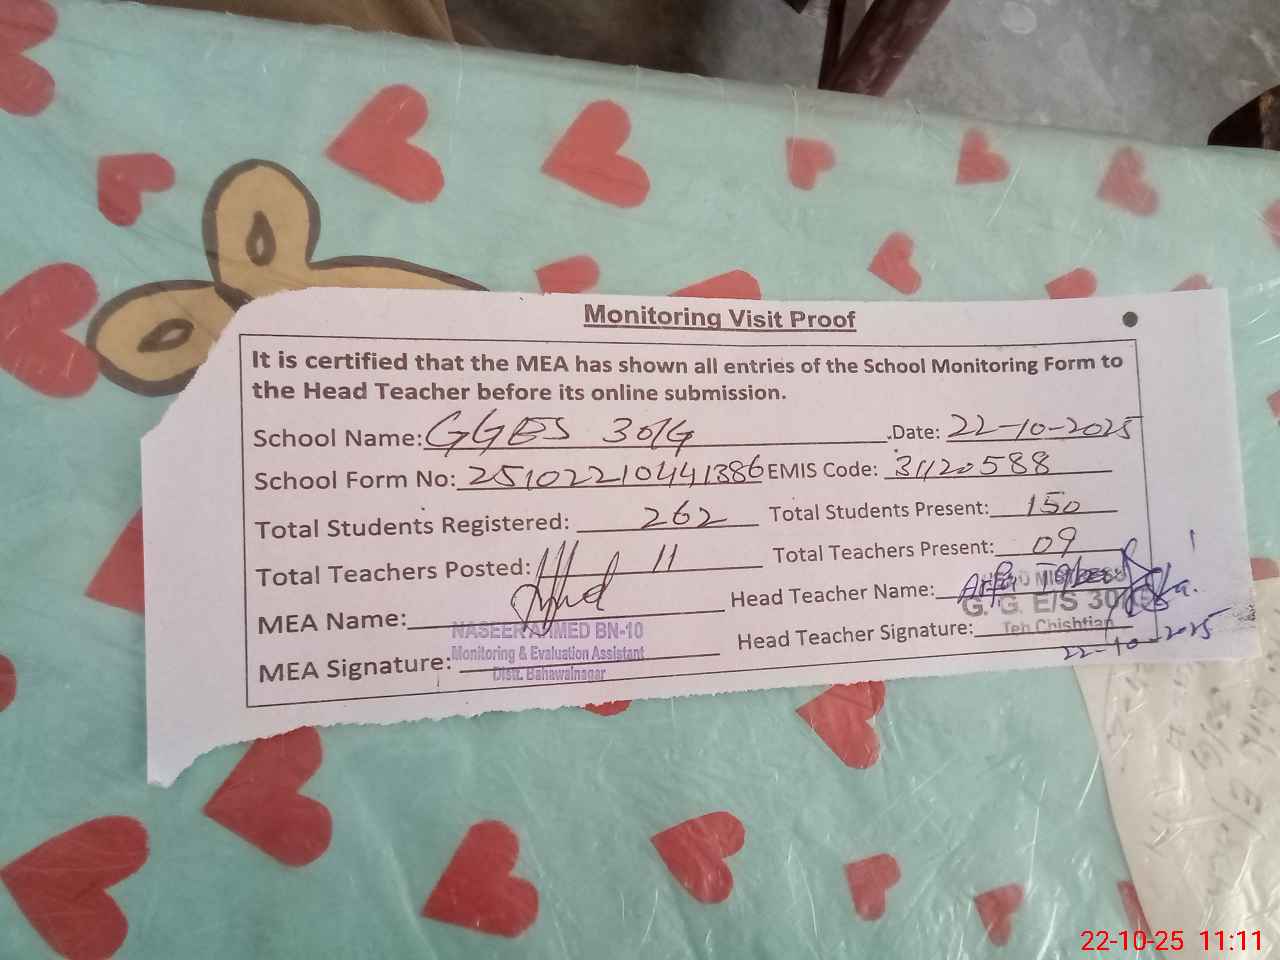 Monitoring Visit Proof
It is certified that the MEA has shown all entries of the School Monitoring Form to
the Head Teacher before its online submission.
School Name: GGES 30/G .Date: 22-10-2025
School Form No: 25102210441386 EMIS Code: 31120588
Total Students Registered: 262 Total Students Present: 150
Total Teachers Posted: 11 Total Teachers Present: 09
MEA Name: Head Teacher Name:
NASEER AHMED BN-10 G. G. E/S 30/G
MEA Signature: Monitoring & Evaluation Assistant Head Teacher Signature: Teh Chishtian
Distt. Bahawalnagar 22-10-2025
22-10-25 11:11